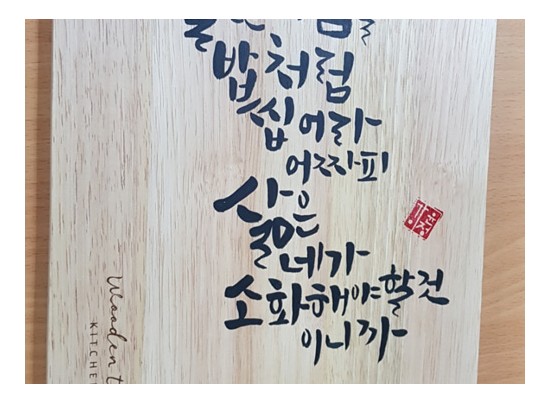 밥처럼
씹어라
어짜피
삶은
네가
소화해야할것
이니까
Wooden
KITCHE